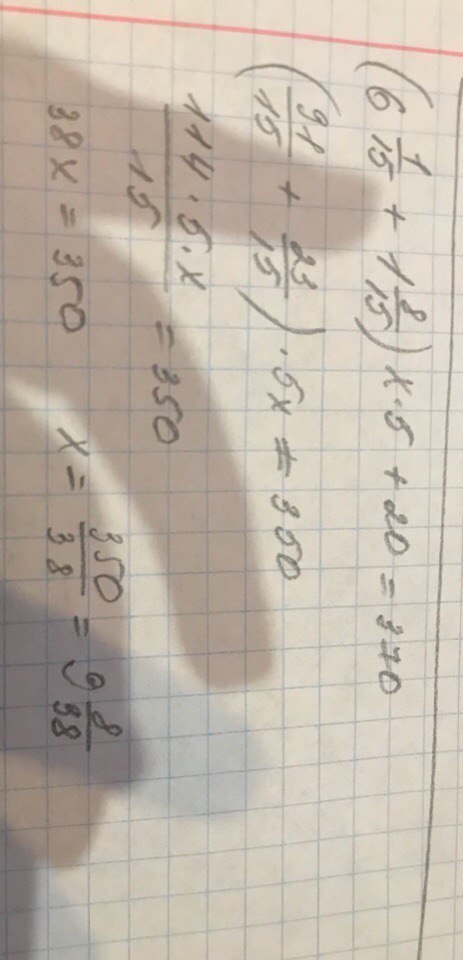 (6 1/15 + 1 8/15) x · 5 + 20 = 370
(91/15 + 23/15) · 5x = 350
114 · 5 · x / 15 = 350
38x = 350    x = 350/38 = 9 8/38